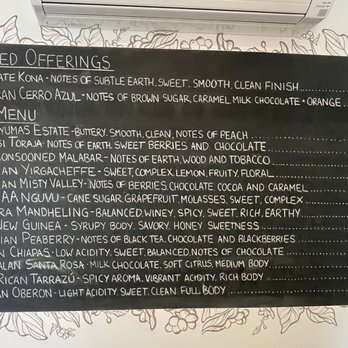 ED OFFERINGS
ATE KONA - NOTES OF SUBTLE EARTH, SWEET, SMOOTH, CLEAN FINISH
RAN CERRO AZUL - NOTES OF BROWN SUGAR, CARAMEL, MILK CHOCOLATE + ORANGE
MENU
YUMAS ESTATE - BUTTERY, SMOOTH, CLEAN, NOTES OF PEACH
SI TORAJA - NOTES OF EARTH, SWEET BERRIES AND CHOCOLATE
ONSOONED MALABAR - NOTES OF EARTH, WOOD AND TOBACCO
AN YIRGACHEFFE - SWEET, COMPLEX, LEMON, FRUITY, FLORAL
AN MISTY VALLEY - NOTES OF BERRIES, CHOCOLATE, COCOA AND CARAMEL
AA NGUVU - CANE SUGAR, GRAPEFRUIT, MOLASSES, SWEET, COMPLEX
RA MANDHELING - BALANCED, WINEY, SPICY, SWEET, RICH, EARTHY
NEW GUINEA - SYRUPY BODY, SAVORY, HONEY SWEETNESS
IAN PEABERRY - NOTES OF BLACK TEA, CHOCOLATE AND BLACKBERRIES
N CHIAPAS - LOW ACIDITY, SWEET, BALANCED, NOTES OF CHOCOLATE
ALAN SANTA ROSA - MILK CHOCOLATE, SOFT CITRUS, MEDIUM BODY
RICAN TARRAZÚ - SPICY AROMA, VIBRANT ACIDITY, RICH BODY
AN OBERON - LIGHT ACIDITY, SWEET, CLEAN, FULL BODY